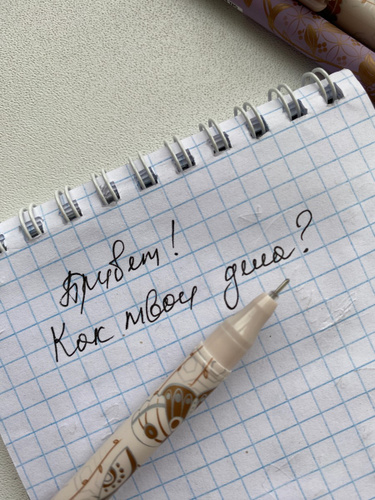 Привет!
Как твои дела?